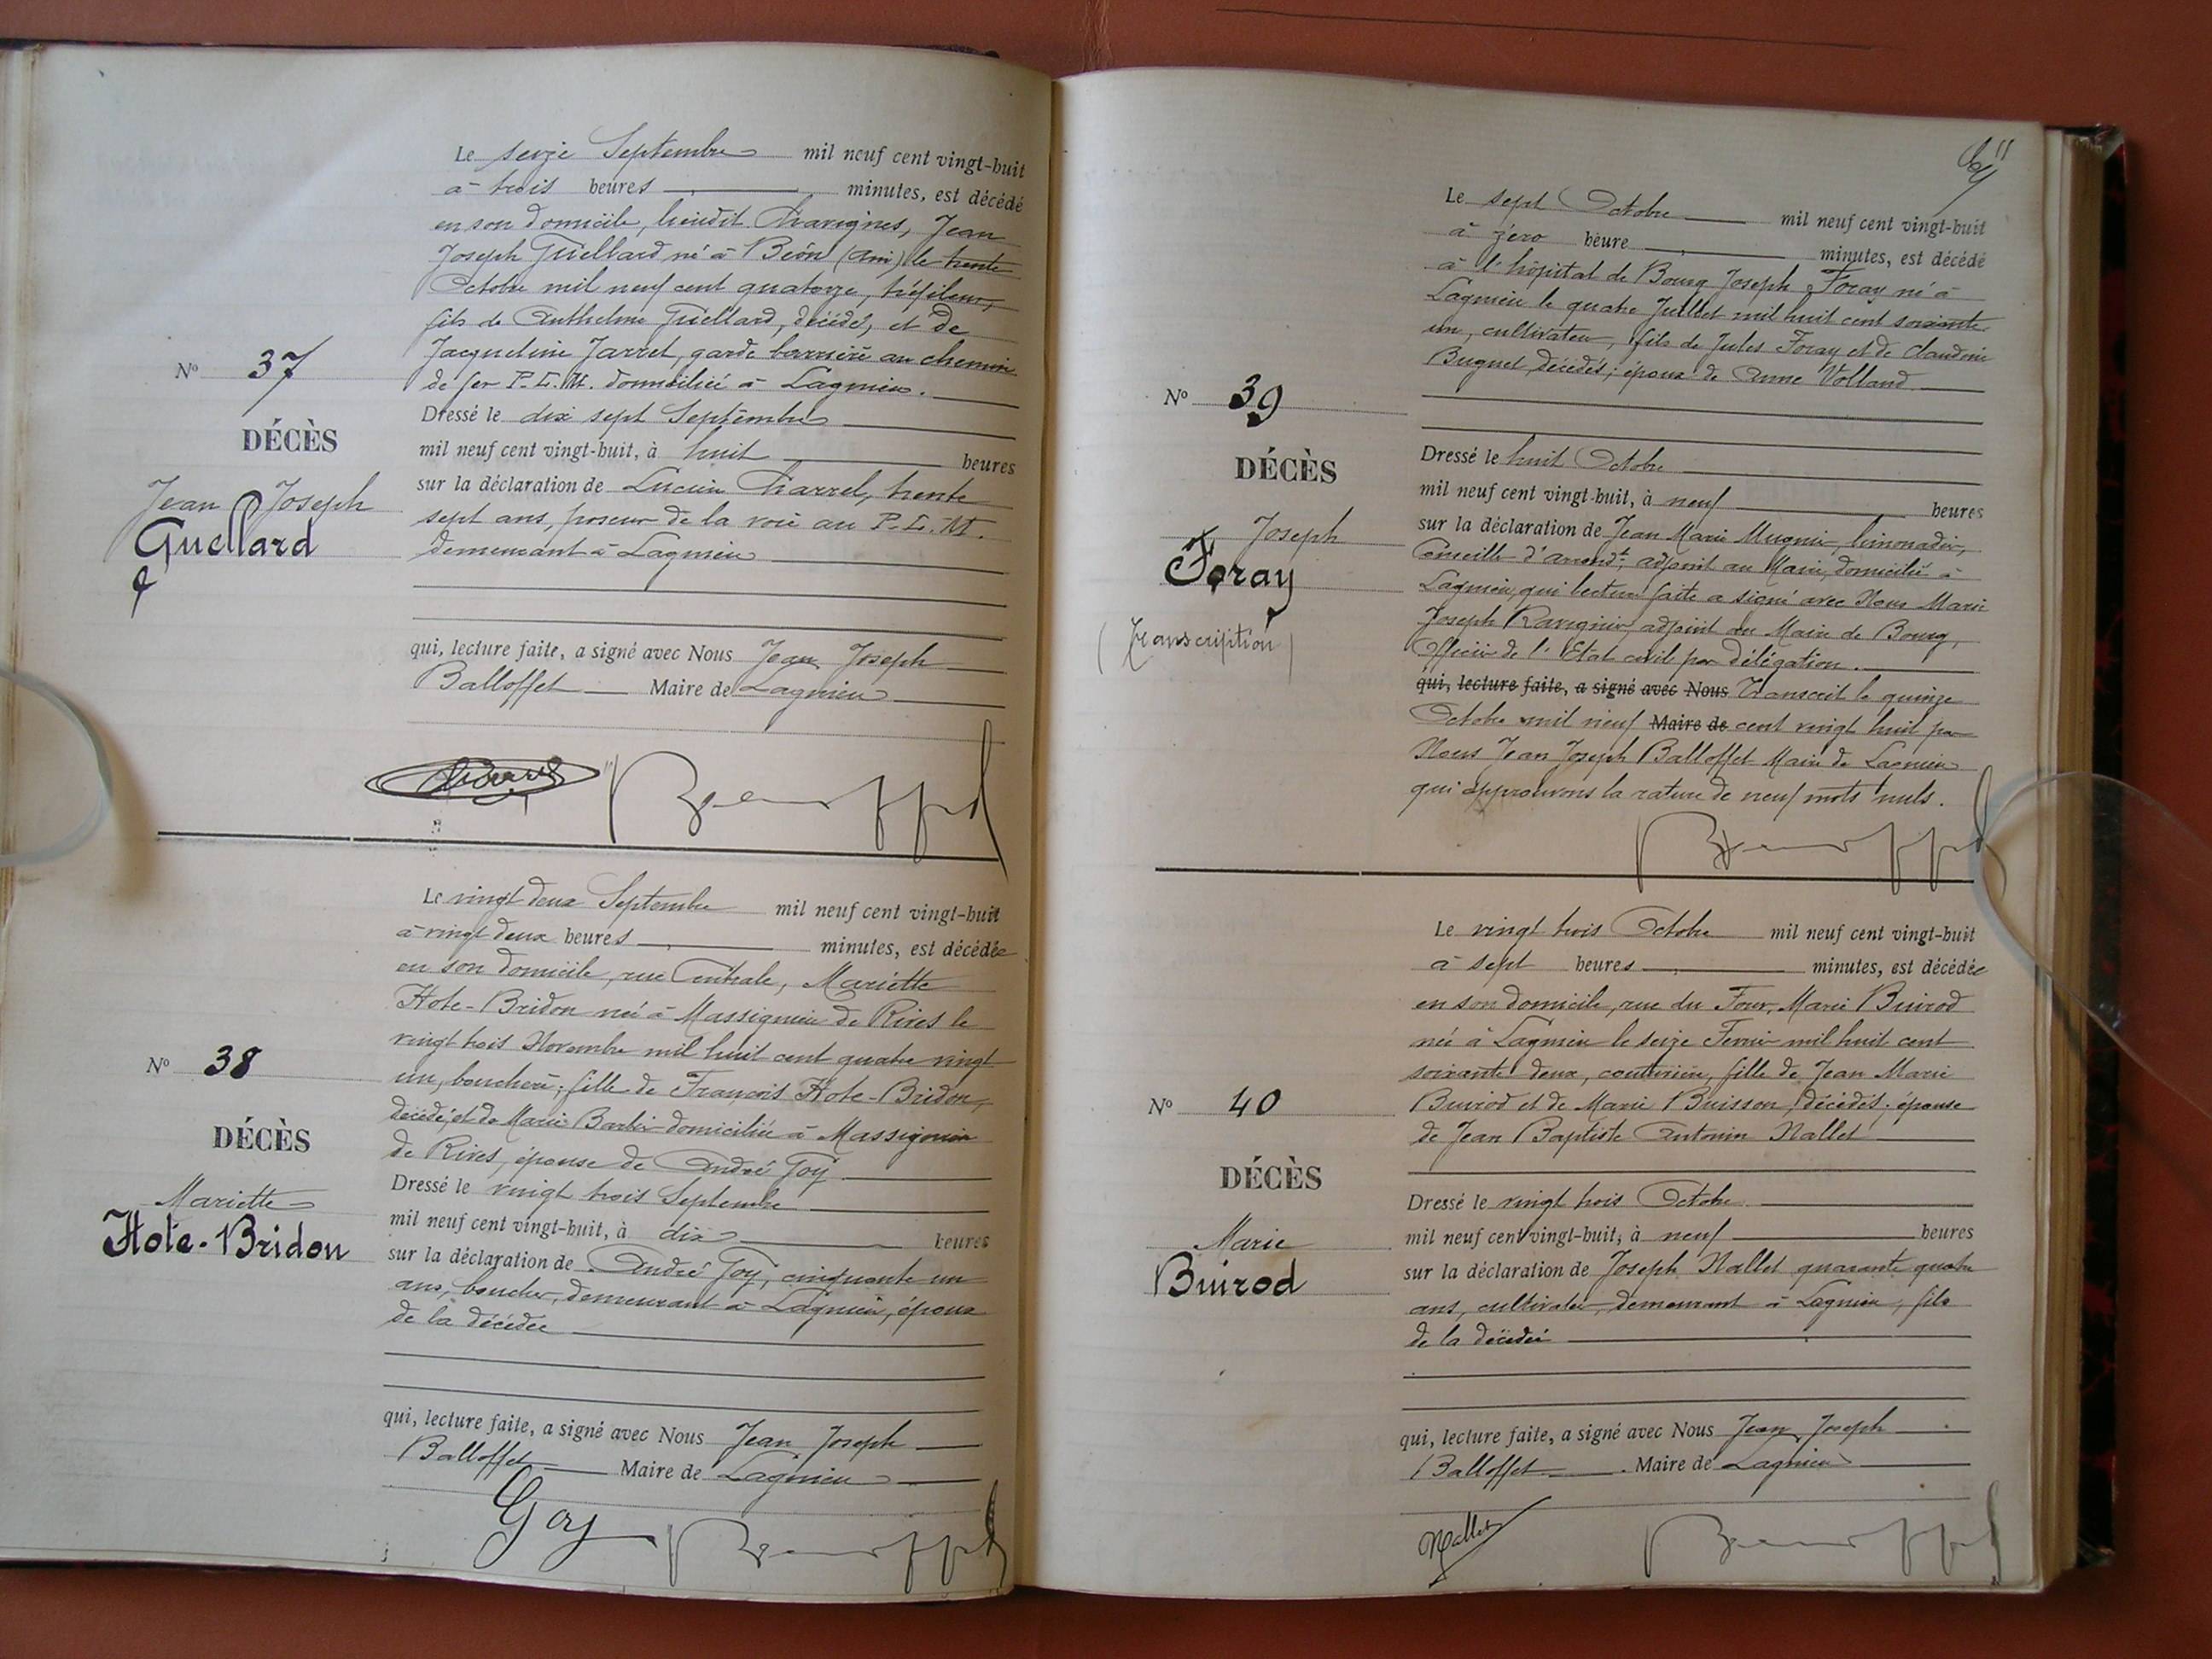 Le seize Septembre mil neuf cent vingt-huit
à trois heures minutes, est décédé
en son domicile, lieudit Charignes, Jean
Joseph Guellard né à Béon (Ain) le trente
Octobre mil neuf cent quatorze, tréfileur,
fils de Anthelme Guellard, décédé, et de
Jacqueline Jarret, garde barrière au chemin
de fer P.L.M. domiciliée à Lagnieu.
N° 37
DÉCÈS
Jean Joseph
Guellard
Dressé le dix sept Septembre
mil neuf cent vingt-huit, à huit heures
sur la déclaration de Lucien Charrel, trente
sept ans, poseur de la voie au P.L.M.
demeurant à Lagnieu
qui, lecture faite, a signé avec Nous Jean Joseph
Balloffet Maire de Lagnieu
Le vingt deux Septembre mil neuf cent vingt-huit
à vingt deux heures minutes, est décédée
en son domicile, rue Centrale, Mariette
Hote-Bridon née à Massignieu de Rives le
vingt trois Novembre mil huit cent quatre vingt
un, bouchère; fille de François Hote-Bridon,
décédé, et de Marie Barbier domiciliée à Massignieu
de Rives, épouse de André Goy
N° 38
DÉCÈS
Mariette
Hote-Bridon
Dressé le vingt trois Septembre
mil neuf cent vingt-huit, à dix heures
sur la déclaration de André Goy, cinquante un
ans, boucher, demeurant à Lagnieu, époux
de la décédée
qui, lecture faite, a signé avec Nous Jean Joseph
Balloffet Maire de Lagnieu
Goy
Le sept Octobre mil neuf cent vingt-huit
à zéro heure minutes, est décédé
à l'hôpital de Bourg Joseph Foray né à
Lagnieu le quatre Juillet mil huit cent soixante
un, cultivateur, fils de Jules Foray et de Claudine
Buguet décédés; époux de Anne Volland
N° 39
DÉCÈS
Joseph
Foray
(Transcription)
Dressé le huit Octobre
mil neuf cent vingt-huit, à neuf heures
sur la déclaration de Jean Marie Mugnier, limonadier,
Conseiller d'arrondt, adjoint au Maire, domicilié à
Lagnieu, qui lecture faite a signé avec Nous Marie
Joseph Ravignier, adjoint au Maire de Bourg,
Officier de l'Etat civil par délégation.
qui, lecture faite, a signé avec Nous Transcrit le quinze
Octobre mil neuf Maire de cent vingt huit par
Nous Jean Joseph Balloffet Maire de Lagnieu
qui approuvons la rature de neuf mots nuls.
Le vingt trois Octobre mil neuf cent vingt-huit
à sept heures minutes, est décédée
en son domicile, rue du Four, Marie Buirod
née à Lagnieu le seize Février mil huit cent
soixante deux, couturière, fille de Jean Marie
Buirod et de Marie Buisson, décédés; épouse
de Jean Baptiste Antonin Nallet
N° 40
DÉCÈS
Marie
Buirod
Dressé le vingt trois Octobre
mil neuf cent vingt-huit, à neuf heures
sur la déclaration de Joseph Nallet quarante quatre
ans, cultivateur, demeurant à Lagnieu, fils
de la décédée
qui, lecture faite, a signé avec Nous Jean Joseph
Balloffet Maire de Lagnieu
Nallet